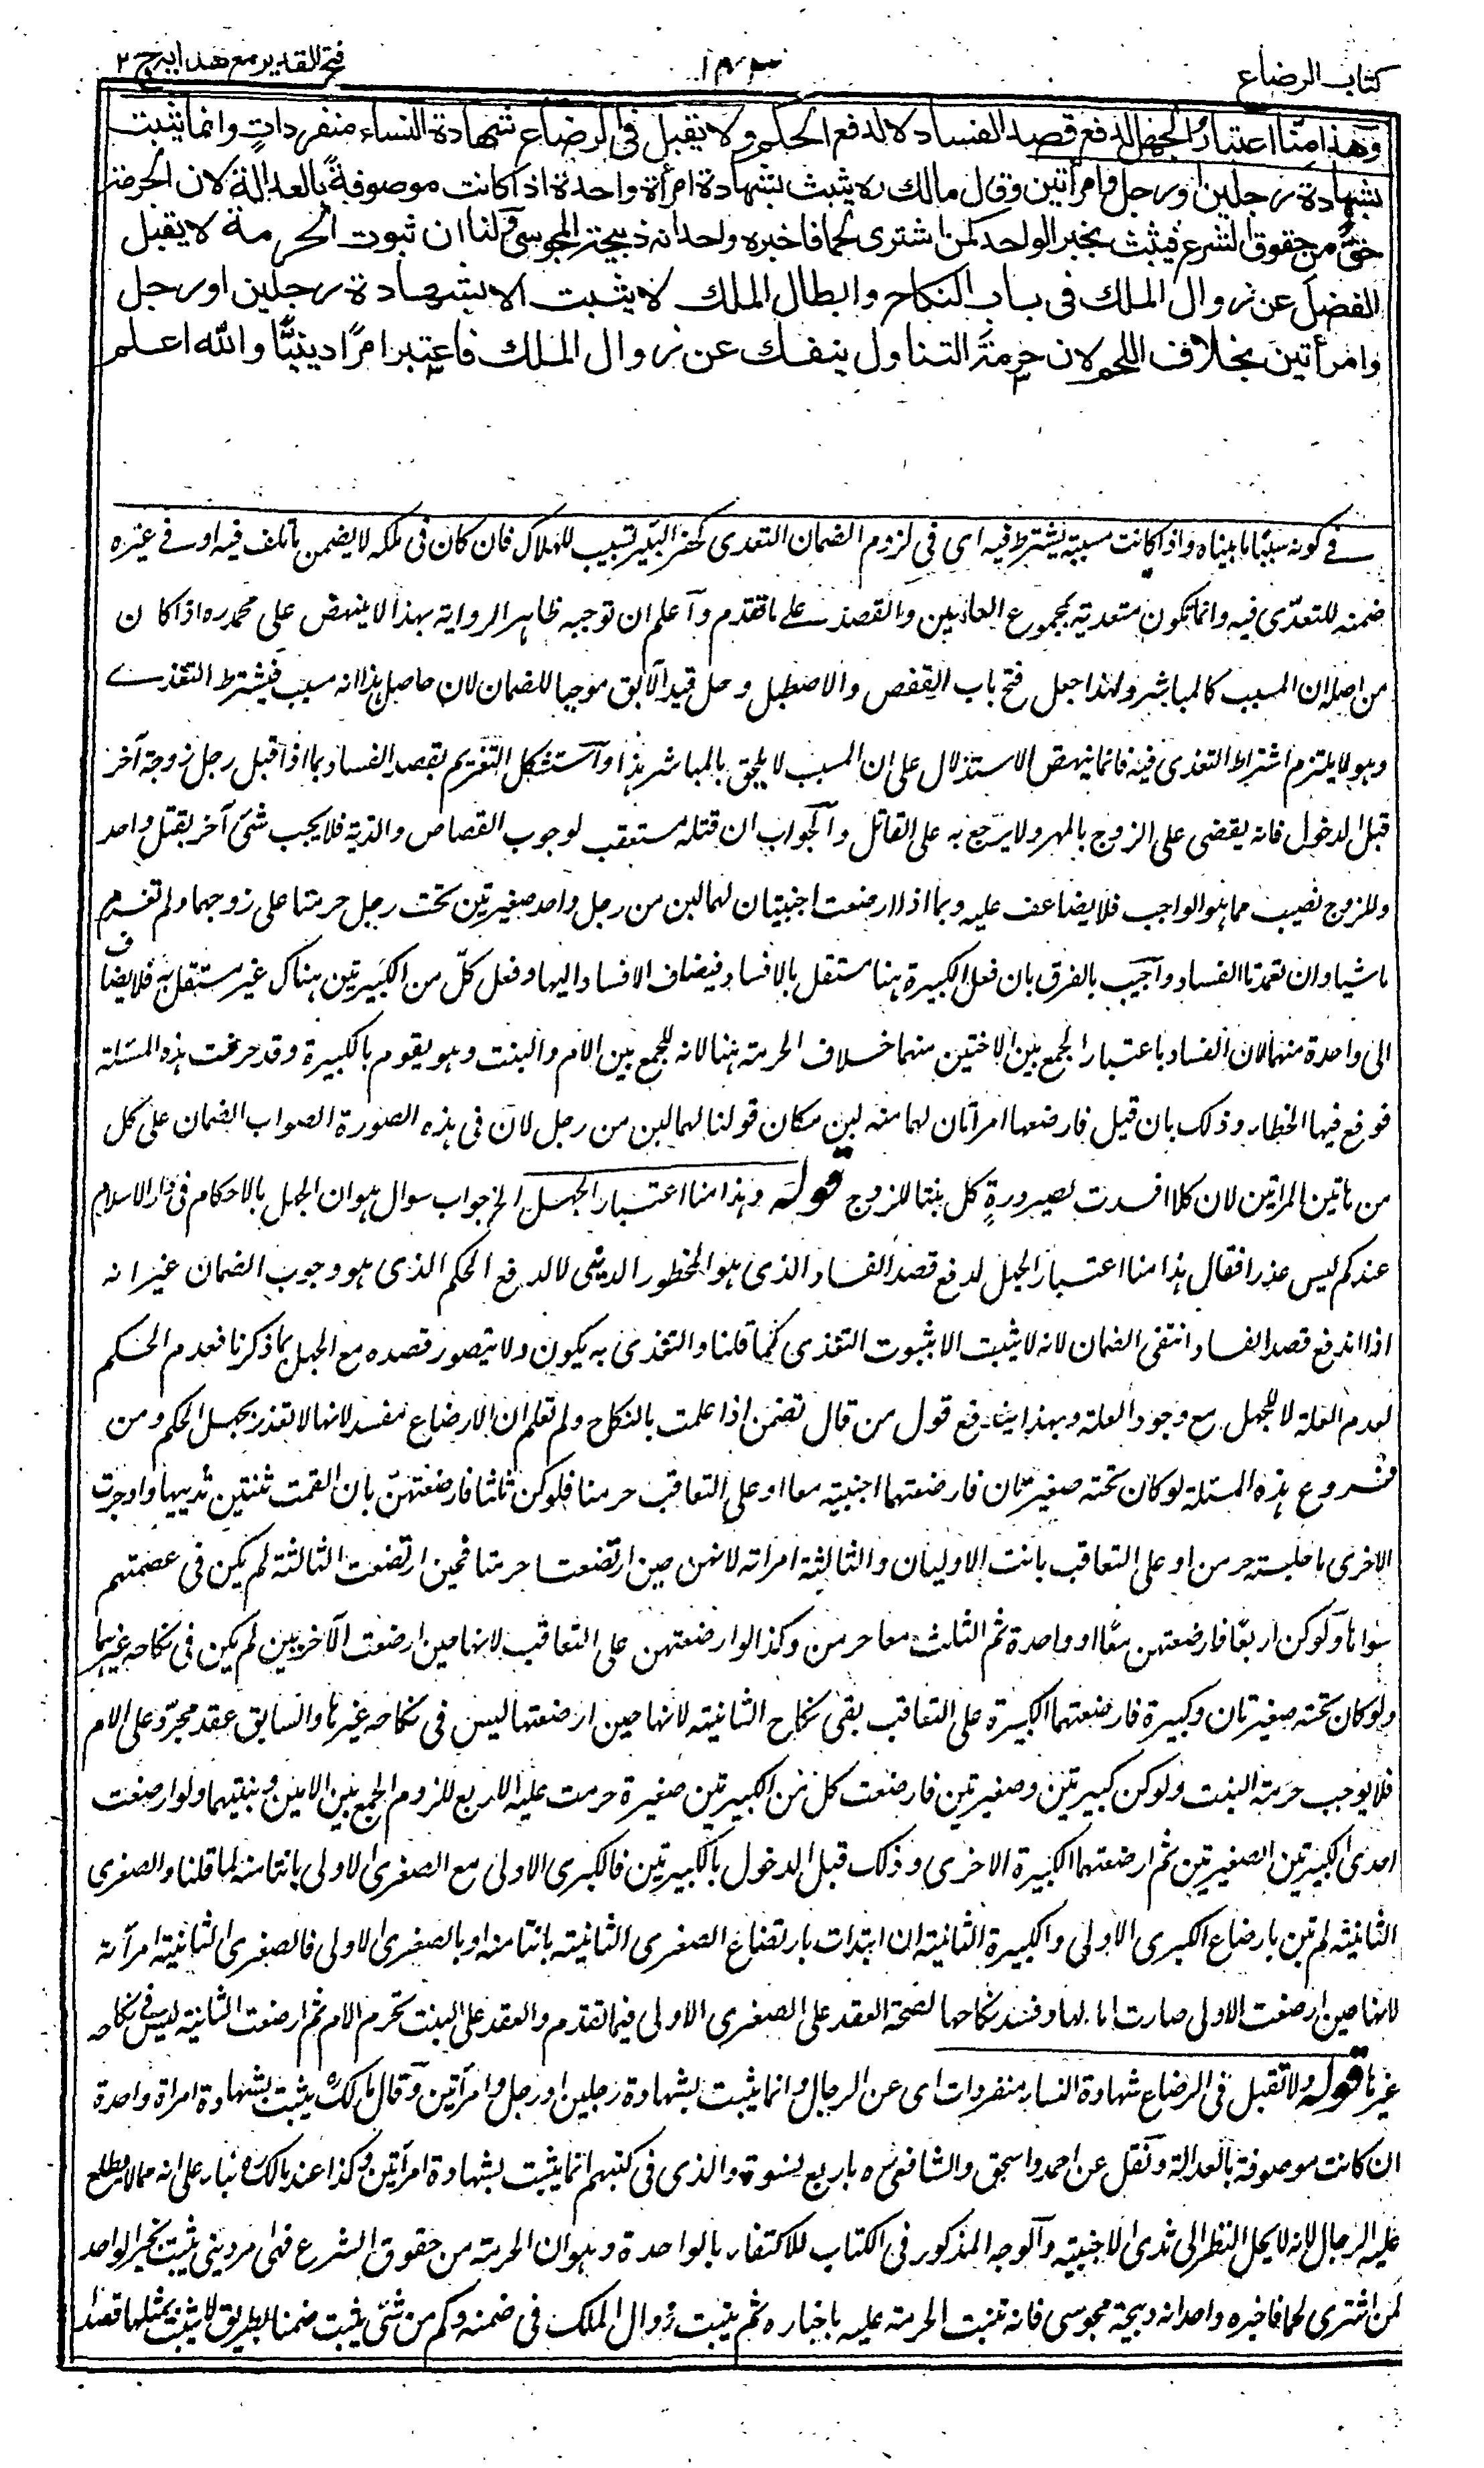 كتاب الرضاع
فتح القدير مع هدايه ج ٢
وهذا منا اعتبار الجهل لدفع قصد الفساد لا لدفع الحكم ولا تقبل في الرضاع شهادة النساء منفردات وانما تثبت
بشهادة رجلين او رجل وامرأتين وقال مالك ره يثبت بشهادة امرأة واحدة اذا كانت موصوفة بالعدالة لان الحرمة
حق من حقوق الشرع فيثبت بخبر الواحد كمن اشترى لحما فاخبره واحد انه ذبيحة المجوسي ولنا ان ثبوت الحرمة لا يقبل
الفصل عن زوال الملك في باب النكاح وابطال الملك لا يثبت الا بشهادة رجلين او رجل
وامرأتين بخلاف اللحم لان حرمة التناول ينفك عن زوال الملك فاعتبر امرا دينيا والله اعلم
في كونه سببا ما بيناه واذا كانت مسببة يشترط فيه اى فى لزوم الضمان التعدى كحفر البئر تسبب للهلاك فان كان فى ملكه لا يضمن ما تلف فيه او فے غيره
ضمنه للتعدى فيه وانما تكون متعدية بمجموع العلمين والقصد على ما تقدم واعلم ان توجيه ظاهر الرواية بهذا لا ينهض على محمد ره اذا كان
من اصله ان المسبب كالمباشر ولهذا جعل فتح باب القفص والاصطبل وحل قيد الآبق موجبا للضمان لان حاصل هذا انه مسبب فيشترط التعدے
وهو لا يلتزم اشتراط التعدى فيه فانما ينهض الاستدلال على ان المسبب لا يلحق بالمباشر هذا واستشكل التغريم بقصد الفساد بما اذا قتل رجل زوجة آخر
قبل الدخول فانه يقضى على الزوج بالمهر ولا يرجع به على القاتل والجواب ان قتله مستعقب لوجوب القصاص والدية فلا يجب شئ آخر بقتل واحد
وللزوج نصيب مما هو الواجب فلا يضاعف عليه وبما اذا ارضعت اجنبيتان لهما لبن من رجل واحد صغيرتين تحت رجل حرمتا على زوجهما ولم تغرم
ما شيئا وان تعمدتا الفساد واجيب بالفرق بان فعل الكبيرة هنا مستقل بالافساد فيضاف الافساد اليها وفعل كل من الكبيرتين هناك غير مستقل به فلا يضاف
الى واحدة منهما لان الفساد باعتبار الجمع بين الاختين منهما خلاف الحرمة هنا لانه للجمع بين الام والبنت وهو يقوم بالكبيرة وقد حرفت هذه المسئلة
فوقع فيها الخطاء وذلك بان قيل فارضعها امرأتان لهما منه لبن مكان قولنا لهما لبن من رجل لان فى هذه الصورة الصواب الضمان على كل
من هاتين المرأتين لان كلا افسدت لصيرورة كل بنتا للزوج قوله وهذا منا اعتبار الجهل الخ جواب سوال هو ان الجهل بالاحكام فى دار الاسلام
عندكم ليس عذرا فقال هذا منا اعتبار الجهل لدفع قصد الفساد الذى هو المحظور الدينى لا لدفع الحكم الذى هو وجوب الضمان غير انه
اذا اندفع قصد الفساد انتفى الضمان لانه لا يثبت الا بثبوت التعدى كما قلنا والتعدى به يكون ولا يتصور قصده مع الجهل بما ذكرنا فعدم الحكم
لعدم العلة لا للجهل مع وجود العلة وبهذا يندفع قول من قال تضمن اذا علمت بالنكاح ولم تعلم ان الارضاع مفسد لانها لا تعذر بجهل الحكم ومن
فروع هذه المسئلة لو كان تحته صغيرتان فارضعتهما اجنبية معا او على التعاقب حرمتا فلو كن ثلثا فارضعتهن بان القمت ثنتين ثدييها واوجرت
الاخرى ما حلبته حرمن او على التعاقب بانت الاوليان والثالثة امرأته لانهن حين ارتضعتا حرمتا فحين ارتضعت الثالثة لم يكن فى عصمتهم
سواها ولو كن اربعا فارضعتهن معا او واحدة ثم الثلث معا حرمن وكذا لو ارضعتهن على التعاقب لانها حين ارضعت الآخرين لم يكن فى نكاحه غيرهما
ولو كان تحته صغيرتان وكبيرة فارضعتهما الكبيرة على التعاقب بقى نكاح الثانية لانها حين ارضعتها ليس فى نكاحه غيرها والسابق عقد مجرد على الام
فلا يوجب حرمة البنت ولو كن كبيرتين وصغيرتين فارضعت كل من الكبيرتين صغيرة حرمت عليه الاربع للزوم الجمع بين الامين وبنتيهما ولو ارضعت
احدى الكبيرتين الصغيرتين ثم ارضعتهما الكبيرة الاخرى وذلك قبل الدخول بالكبيرتين فالكبرى الاولى مع الصغرى الاولى بانتا منه لما قلنا والصغرى
الثانية لم تبن بارضاع الكبرى الاولى والكبيرة الثانية ان ابتدأت بارتضاع الصغرى الثانية بانتا منه او بالصغرى الاولى فالصغرى الثانية امرأته
لانها حين ارضعت الاولى صارت اما لها وفسد نكاحها لصحة العقد على الصغرى الاولى فيما تقدم والعقد على البنت يحرم الام ثم ارضعت الثانية ليس فى نكاحه
غيرها قوله ولا تقبل فى الرضاع شهادة النساء منفردات اى عن الرجال وانما يثبت بشهادة رجلين او رجل وامرأتين وقال مالك ره يثبت بشهادة امرأة واحدة
ان كانت موصوفة بالعدالة ونقل عن احمد واسحق والشافعى ره باربع نسوة والذى فى كتبهم انما يثبت بشهادة امرأتين وكذا عند مالك ره بناء على انه مما لا يطلع
عليه الرجال لانه لا يحل النظر الى ثدى الاجنبية والوجه المذكور فى الكتاب للاكتفاء بالواحدة وهو ان الحرمة من حقوق الشرع فهى امر دينى يثبت بخبر الواحد
كمن اشترى لحما فاخبره واحد انه ذبيحة مجوسى فانه تثبت الحرمة عليه باخباره ثم يثبت زوال الملك فى ضمنه وكم من شئ يثبت ضمنا بطريق لا يثبت بمثلها قصدا